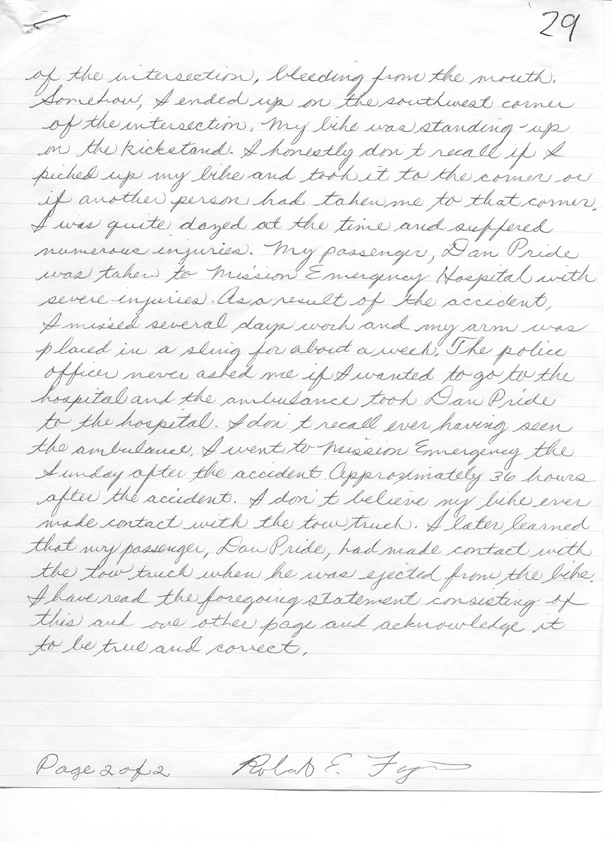 29
of the intersection, bleeding from the mouth.
Somehow, I ended up on the southwest corner
of the intersection. My bike was standing-up
on the kickstand. I honestly don't recall if I
picked up my bike and took it to the corner or
if another person had taken me to that corner.
I was quite dazed at the time and suffered
numerous injuries. My passenger, Dan Pride
was taken to Mission Emergency Hospital with
severe injuries. As a result of the accident,
I missed several days work and my arm was
placed in a sling for about a week. The police
officer never asked me if I wanted to go to the
hospital and the ambulance took Dan Pride
to the hospital. I don't recall ever having seen
the ambulance. I went to Mission Emergency the
Sunday after the accident. Approximately 36 hours
after the accident. I don't believe my bike ever
made contact with the tow truck. I later learned
that my passenger, Dan Pride, had made contact with
the tow truck when he was ejected from the bike.
I have read the foregoing statement consisting of
this and one other page and acknowledge it
to be true and correct.
Page 2 of 2 Robert E.